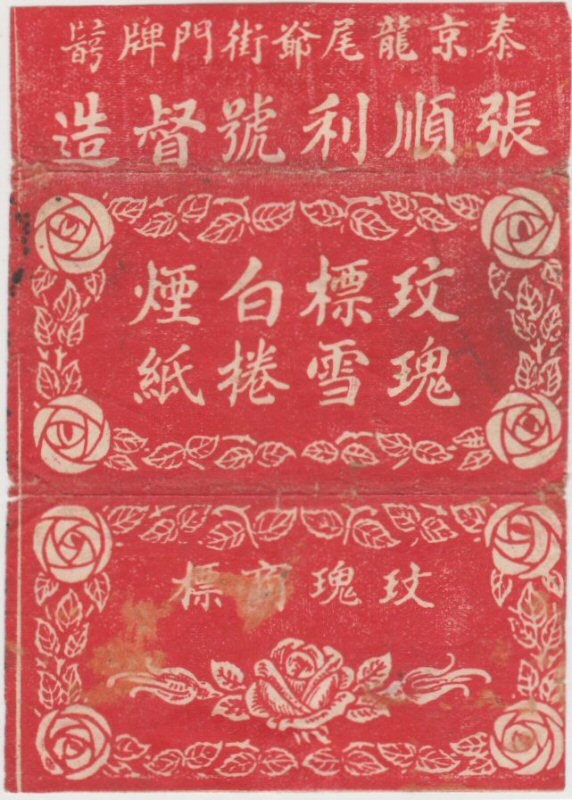 泰京龍尾爺街門牌
張順利號督造
玫瑰
標雪
白捲
煙紙
玫瑰商標